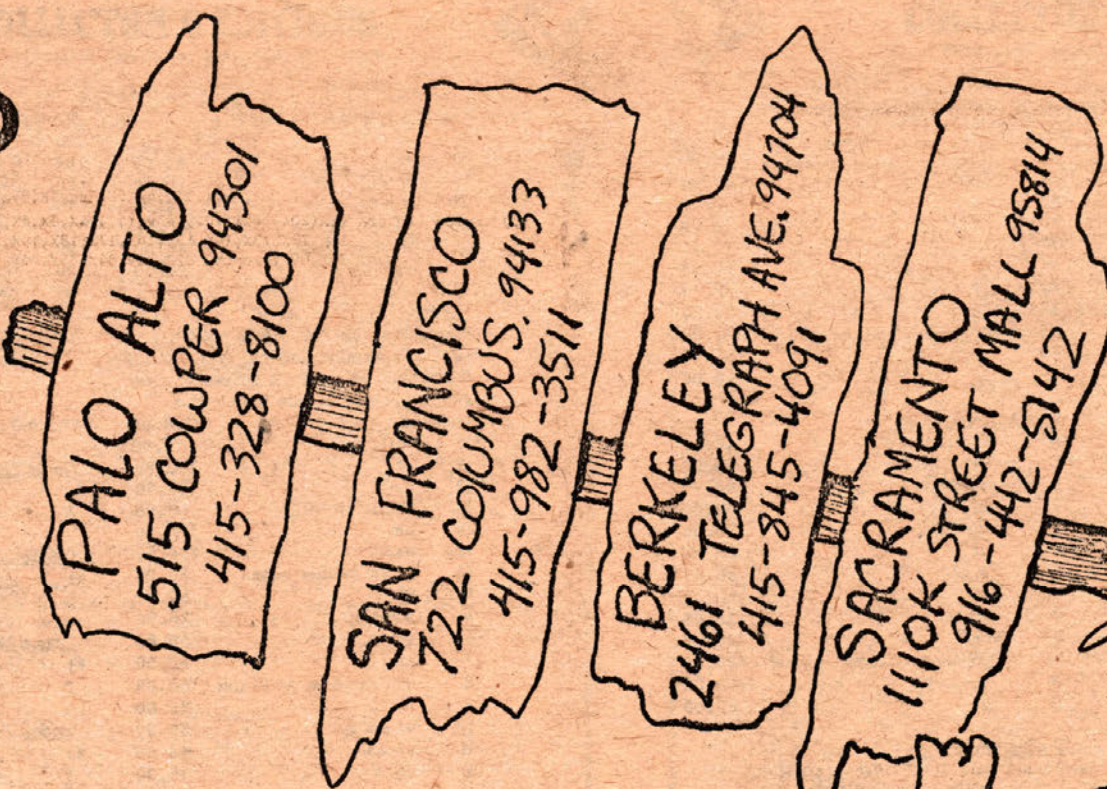 PALO ALTO
515 COWPER 94301
415-328-8100
SAN FRANCISCO
722 COLUMBUS. 94133
415-982-3511
BERKELEY
2461 TELEGRAPH AVE. 94704
415-845-4091
SACRAMENTO
1110K STREET MALL 95814
916-442-5142